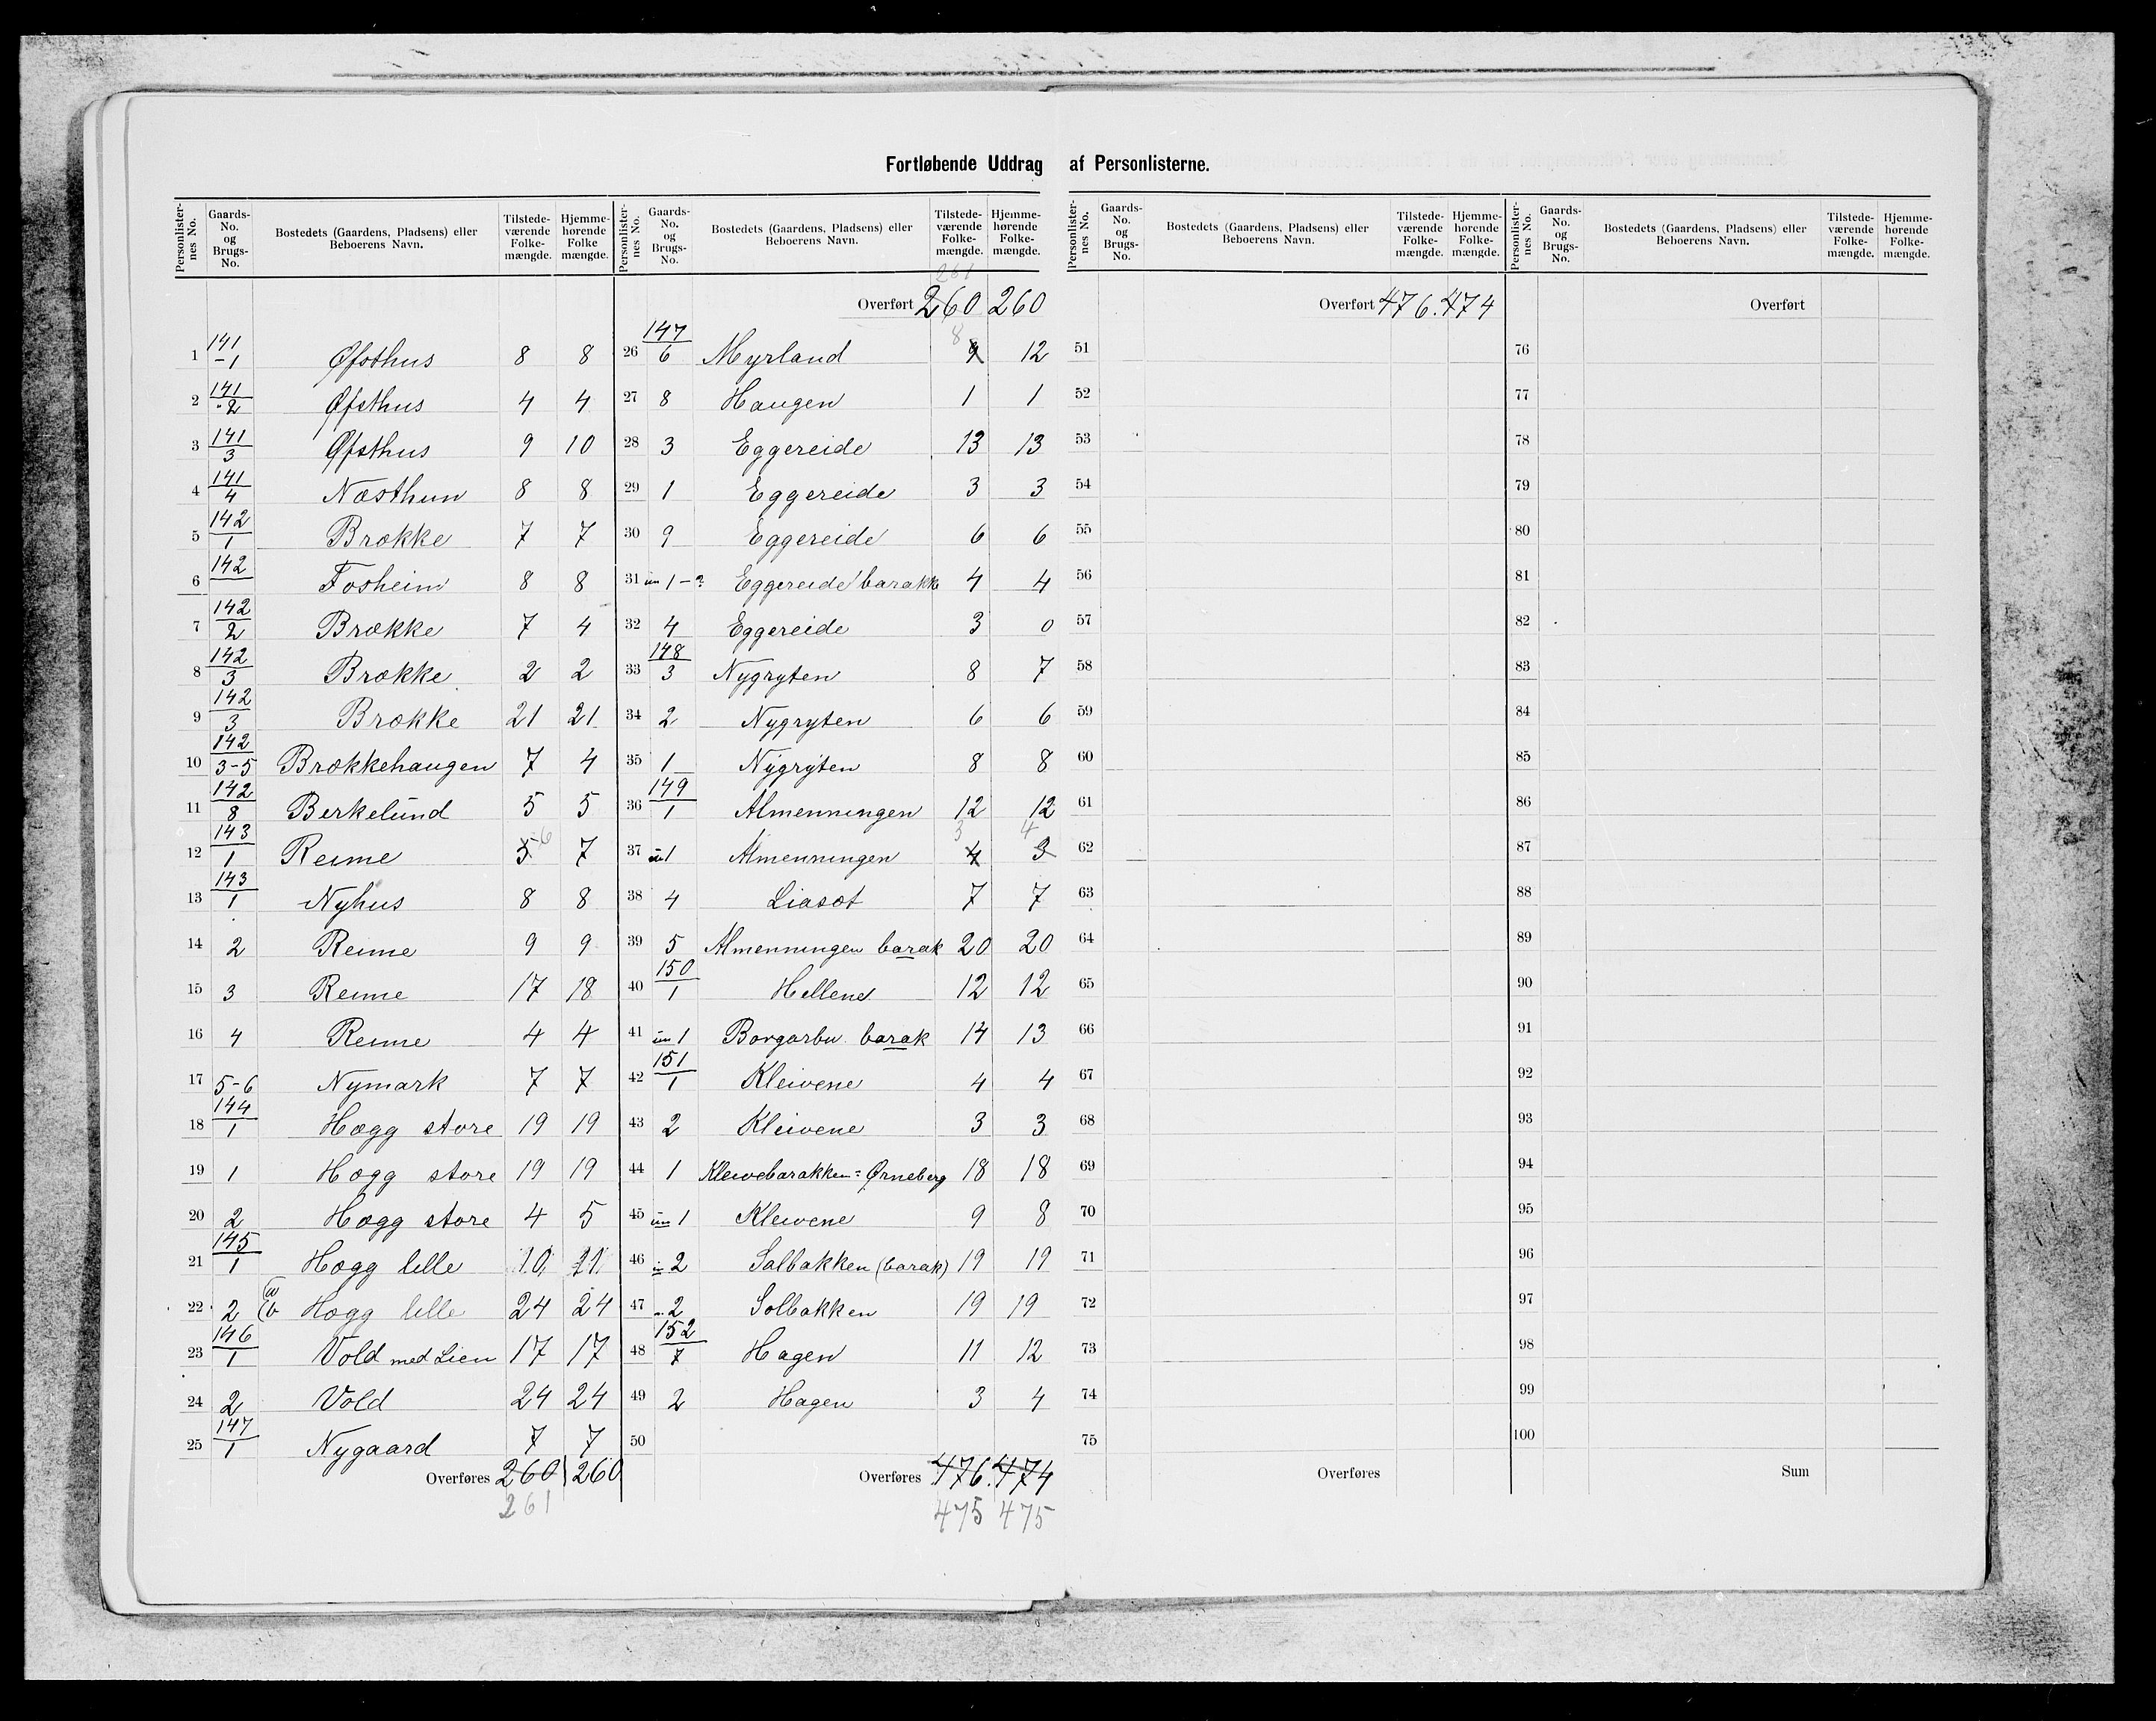 Fortløbende Uddrag af Personlisterne.
Personlister-nes No. | Gaards-No. og Brugs-No. | Bostedets (Gaardens, Pladsens) eller Beboerens Navn. | Tilstede-værende Folke-mængde. | Hjemme-hørende Folke mængde.
1 141/1 Øfsthus 8 8
2 141/2 Øfsthus 4 4
3 141/3 Øfsthus 9 10
4 141/4 Næsthun 8 8
5 142/1 Brække 7 7
6 142 Fosheim 8 8
7 142/2 Brække 7 4
8 142/3 Brække 2 2
9 142/3 Brække 21 21
10 142/3-5 Brækkehaugen 7 4
11 142/8 Berkelund 5 5
12 143/1 Reime 5 6 7
13 143/1 Nyhus 8 8
14 2 Reime 9 9
15 3 Reime 17 18
16 4 Reime 4 4
17 5-6 Nymark 7 7
18 144/1 Hægg store 19 19
19 1 Hægg store 19 19
20 2 Hægg store 4 5
21 145/1 Hægg lille 10 11
22 2 a b Hægg lille 24 24
23 146/1 Vold med Lien 17 17
24 2 Vold 24 24
25 147/1 Nygaard 7 7
Overføres 260 260
261
Personlister-nes No. | Gaards-No. og Brugs-No. | Bostedets (Gaardens, Pladsens) eller Beboerens Navn. | Tilstede-værende Folke-mængde. | Hjemme-hørende Folke-mængde.
261
Overført 260 260
26 147/6 Myrland 8 9 12
27 8 Haugen 1 1
28 3 Eggereide 13 13
29 1 Eggereide 3 3
30 9 Eggereide 6 6
31 1-2 Eggereide barakke 4 4
32 4 Eggereide 3 0
33 148/3 Nygryten 8 7
34 2 Nygryten 6 6
35 1 Nygryten 8 8
36 149/1 Almenningen 12 12
37 1 Almenningen 3 4 4 3
38 4 Liasæt 7 7
39 5 Almenningen barak 20 20
40 150/1 Hellene 12 12
41 1 Borgarbu barak 14 13
42 151/1 Kleivene 4 4
43 2 Kleivene 3 3
44 1 Kleivebarakken = Ørneberg 18 18
45 1 Kleivene 9 8
46 2 Solbakken (barak) 19 19
47 2 Solbakken 19 19
48 152/1 Hagen 11 12
49 2 Hagen 3 4
50
Overføres 476. 474
475 475
Personlister-nes No. | Gaards-No. og Brugs-No. | Bostedets (Gaardens, Pladsens) eller Beboerens Navn. | Tilstede-værende Folke-mængde. | Hjemme-hørende Folke-mængde.
Overført 476. 474
51
52
53
54
55
56
57
58
59
60
61
62
63
64
65
66
67
68
69
70
71
72
73
74
75
Overføres
Personlister-nes No. | Gaards-No. og Brugs-No. | Bostedets (Gaardens, Pladsens) eller Beboerens Navn. | Tilstede-værende Folke-mængde. | Hjemme-hørende Folke-mængde.
Overført
76
77
78
79
80
81
82
83
84
85
86
87
88
89
90
91
92
93
94
95
96
97
98
99
100
Sum